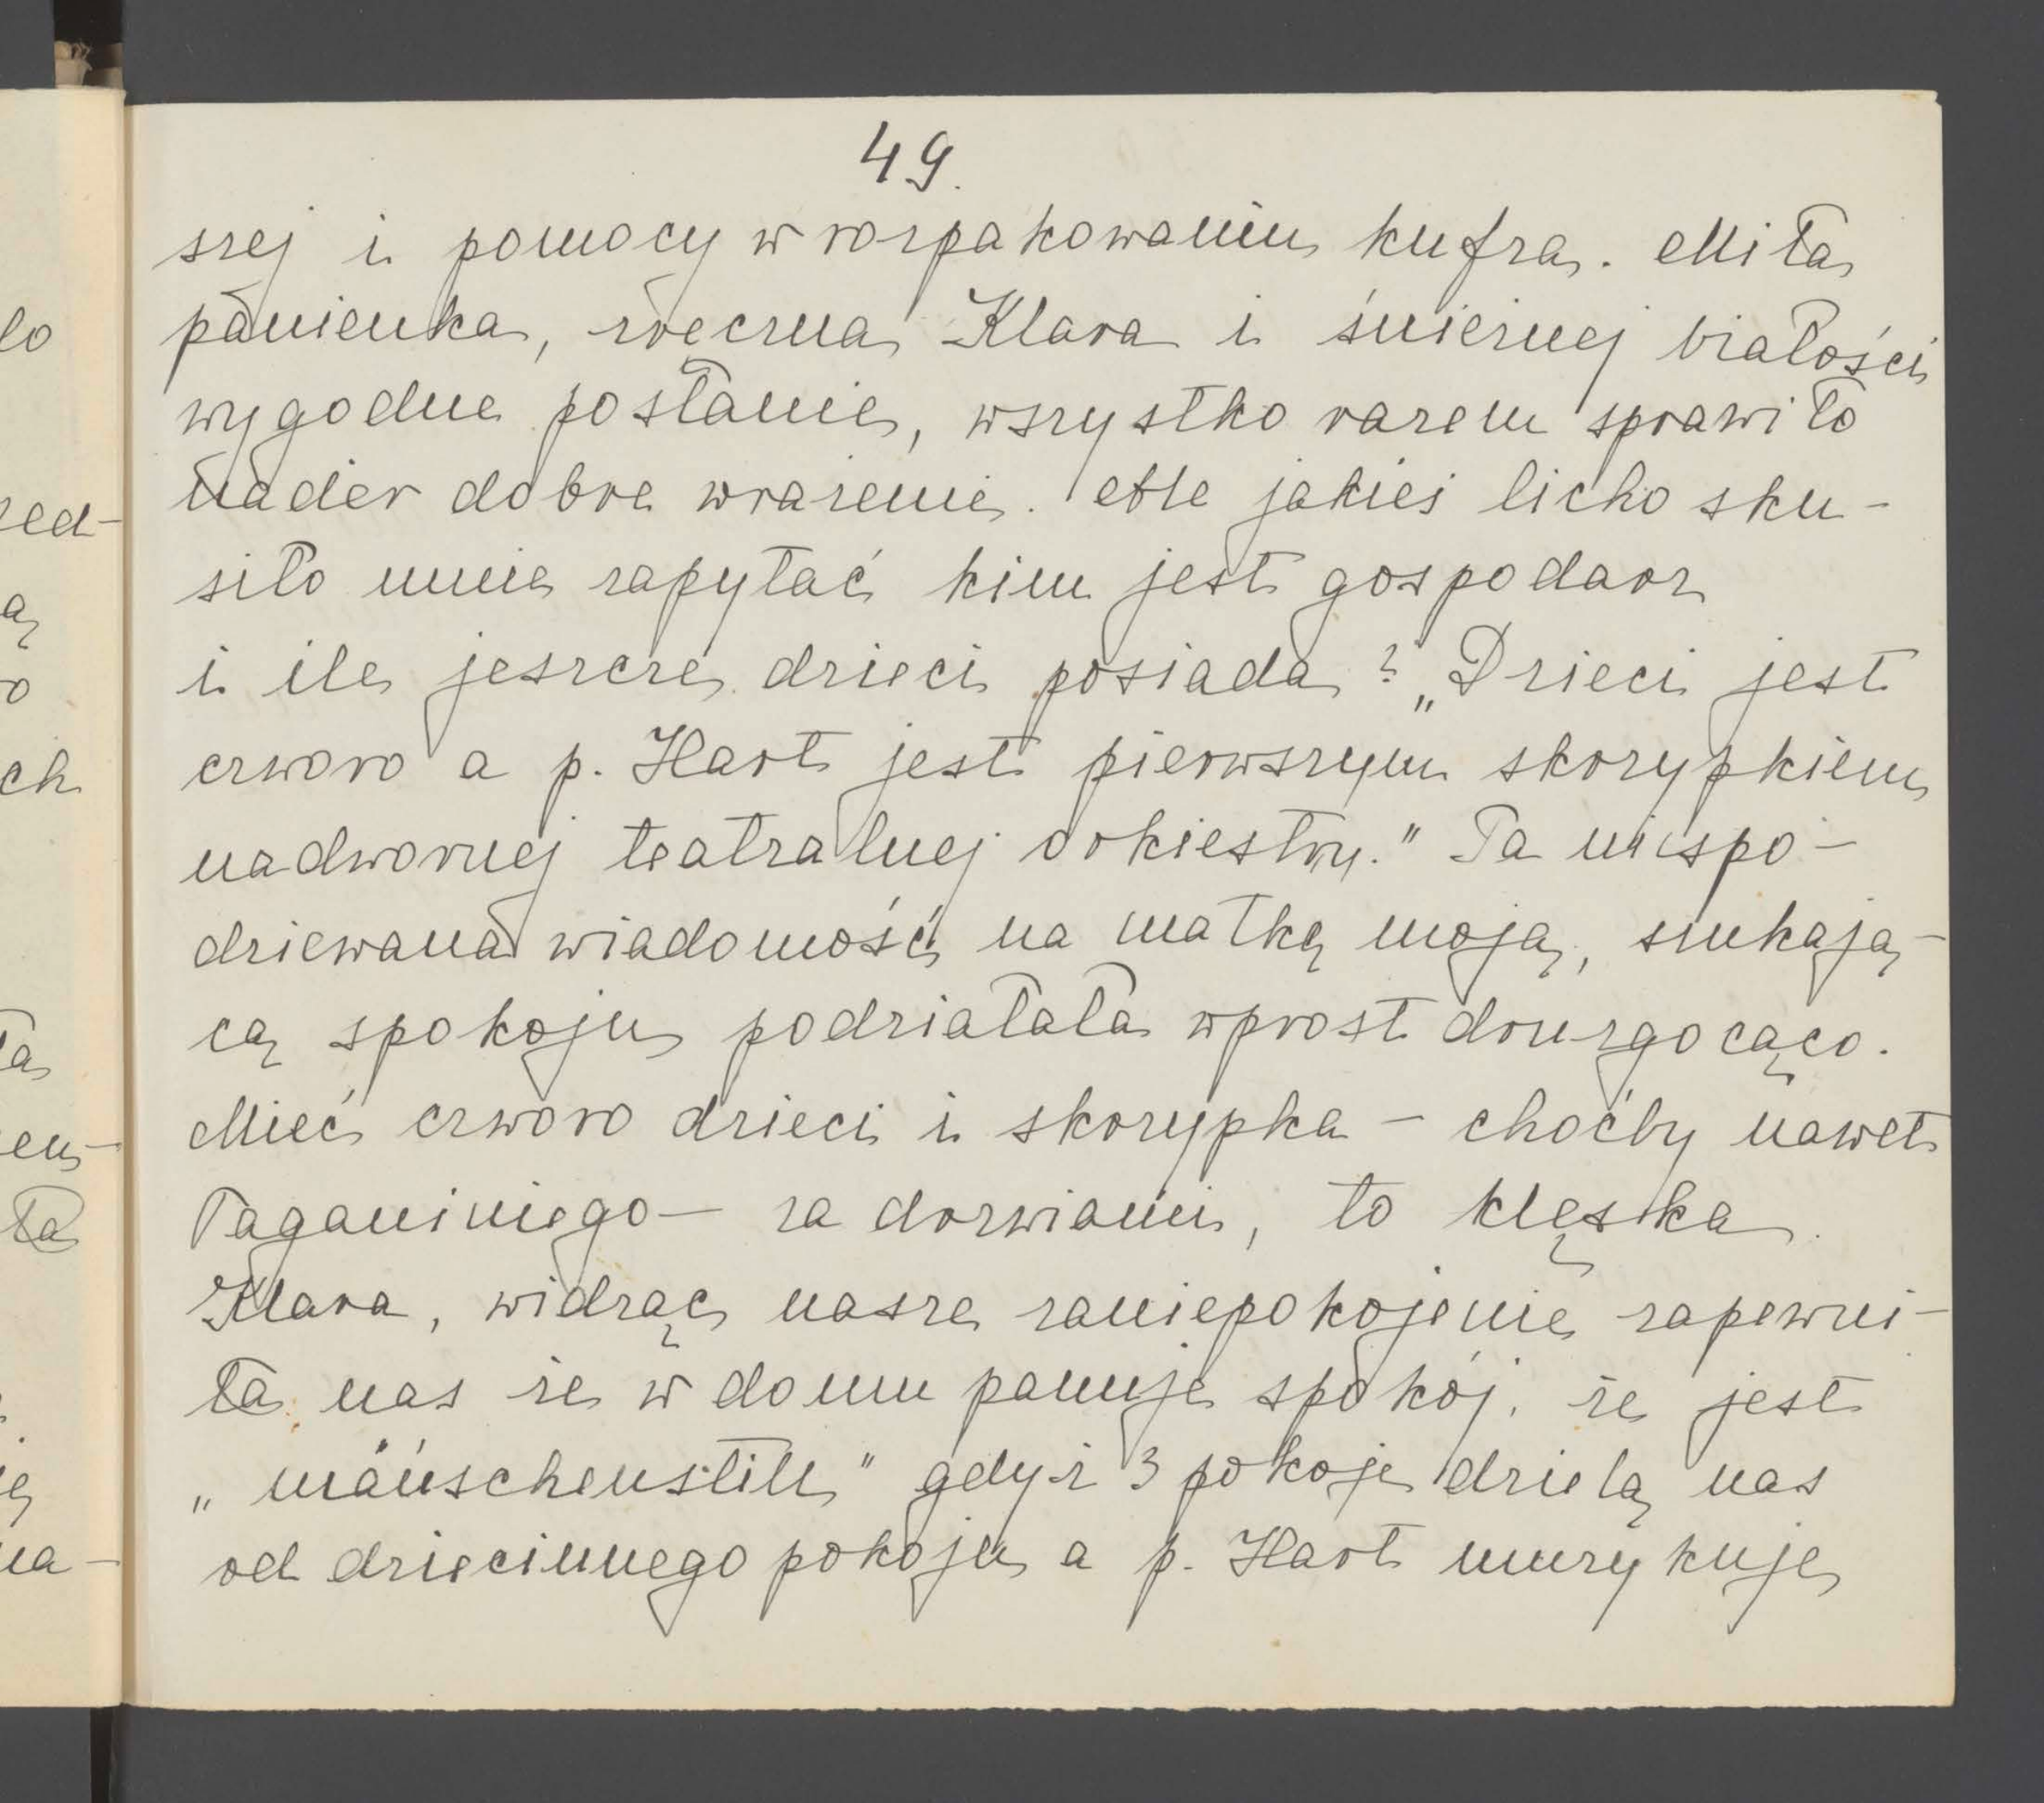 49.
szej i pomocy w rozpakowaniu kufra. Miła
panienka, zręczna Klara i śnieżnej białości
wygodne posłanie, wszystko razem sprawiło
nader dobre wrażenie. Ale jakieś licho sku-
siło mnie zapytać kim jest gospodarz
i ile jeszcze dzieci posiada? „Dzieci jest
czworo a p. Hart jest pierwszym skrzypkiem
nadwornej teatralnej orkiestry." Ta niespo-
dziewana wiadomość na matkę moją, szukają-
cą spokoju podziałała wprost druzgocąco.
Mieć czworo dzieci i skrzypka – choćby nawet
Paganiniego – za drzwiami, to klęska.
Klara, widząc nasze zaniepokojenie zapewni-
ła nas że w domu panuje spokój, że jest
„mäuschenstill" gdyż 3 pokoje dzielą nas
od dziecinnego pokoju a p. Hart muzykuje
lo
zed-
ą
o
ch
ła
en-
ła
ę
na-